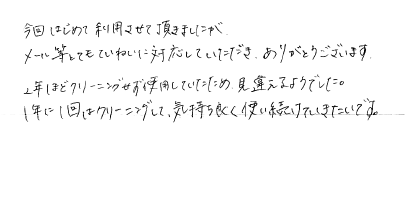 今回はじめて利用させて頂きましたが、
メール等とてもていねいに対応していただき、ありがとうございます。
2年ほどクリーニングせず使用していたため、見違えるようでした。
1年に1回はクリーニングして、気持ち良く使い続けていきたいです。